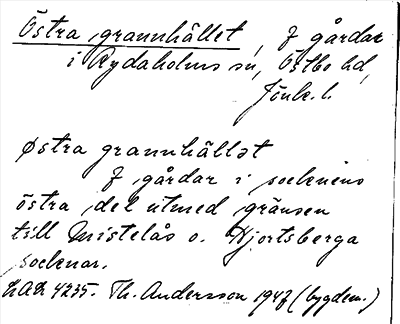 Östra grannhället, f gårdar
i Rydaholms sn, Östbo hd,
Jönk. l.
østra grannhällət
f gårdar i socknens
östra del utmed gränsen
till Mistelås o. Hjortsberga
socknar.
LAL 4235. Th. Andersson 1947 (bygdem.)